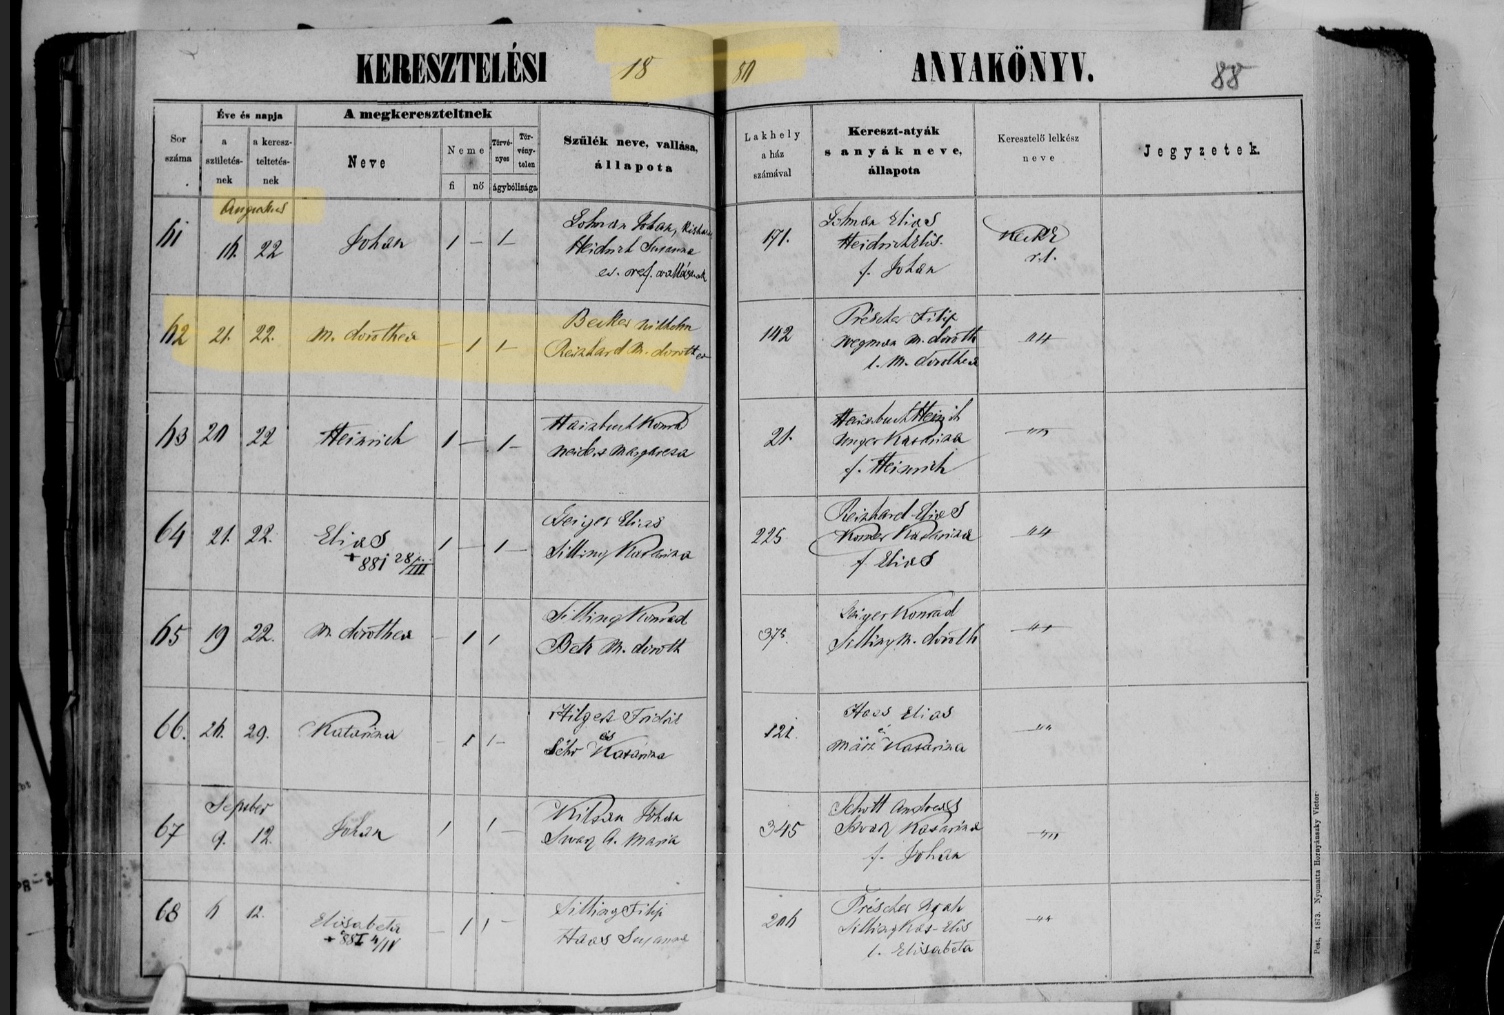 KERESZTELÉSI 18 80 ANYAKÖNYV. 88
Sor száma
Éve és napja
a születés-nek
a keresz-teltetés-nek
A megkereszteltnek
Neve
Neme
fi
nő
Törvé-nyes
Tör-vény-telen
ágyból
Szülék neve, vallása, állapota
Lakhely a ház számával
Kereszt-atyák s anyák neve, állapota
Keresztelő lelkész neve
Jegyzetek.
Augustus
61 16. 22 Johan 1 – 1 –
Johan,
Heidrich Susanna
ev. ref. vallásuak
171.
Elias
Heidrich Elis.
f. Johan
62 21. 22. M. dorothea – 1 1 –
Becker Wilhelm
Reinhard M. dorothea
142
Préscher Filip
Wegman M. doroth
l. M. dorothea
63 20 22 Heinrich 1 – 1 –
Konrad
Margareta
21.
Heinrich
Unger Katarina
f. Heinrich
64 21. 22. Elias 1 – 1 –
+ 881 28/III
Geiger Elias
Silling Katarina
225
Reinhard Elias
Katarina
f. Elias
65 19 22. M. dorothea – 1 1 –
Silling Konrad
Bek M. doroth
375.
Geiger Konrad
Silling M. doroth
66. 26. 29. Katarina – 1 1 –
Hilgert Fridrik
és
Katarina
121
Haas Elias
März Katarina
67 9. 12. Johan 1 1 –
Johan
A. Maria
345
Schott Andreas
Katarina
f. Johan
68 6 12. Elisabeta – 1 1 –
+ 881 4/IV
Silling Filip
Haas Susanna
206
Préscher
Silling Elis
l. Elisabeta
Pest, 1873. Nyomatta Hornyánszky Victor